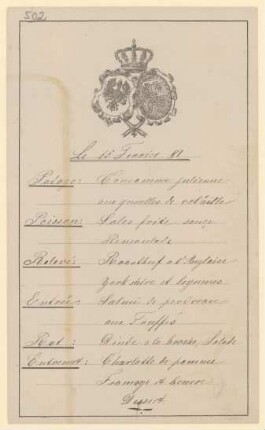 502
Le 15 Fevrier 81
Potage: Consomme julienne
aux quenelles de volaille
Poisson: Soles frite sauce
Remoulade
Relevé: Roastbeef a l'Anglaise
garniture et legumes
Entrée: Salmi de perdreaux
aux Truffes
Rot: Dinde a la broche, Salade
Entremet: Charlotte de pommes
Fromage et beurre
Dessert